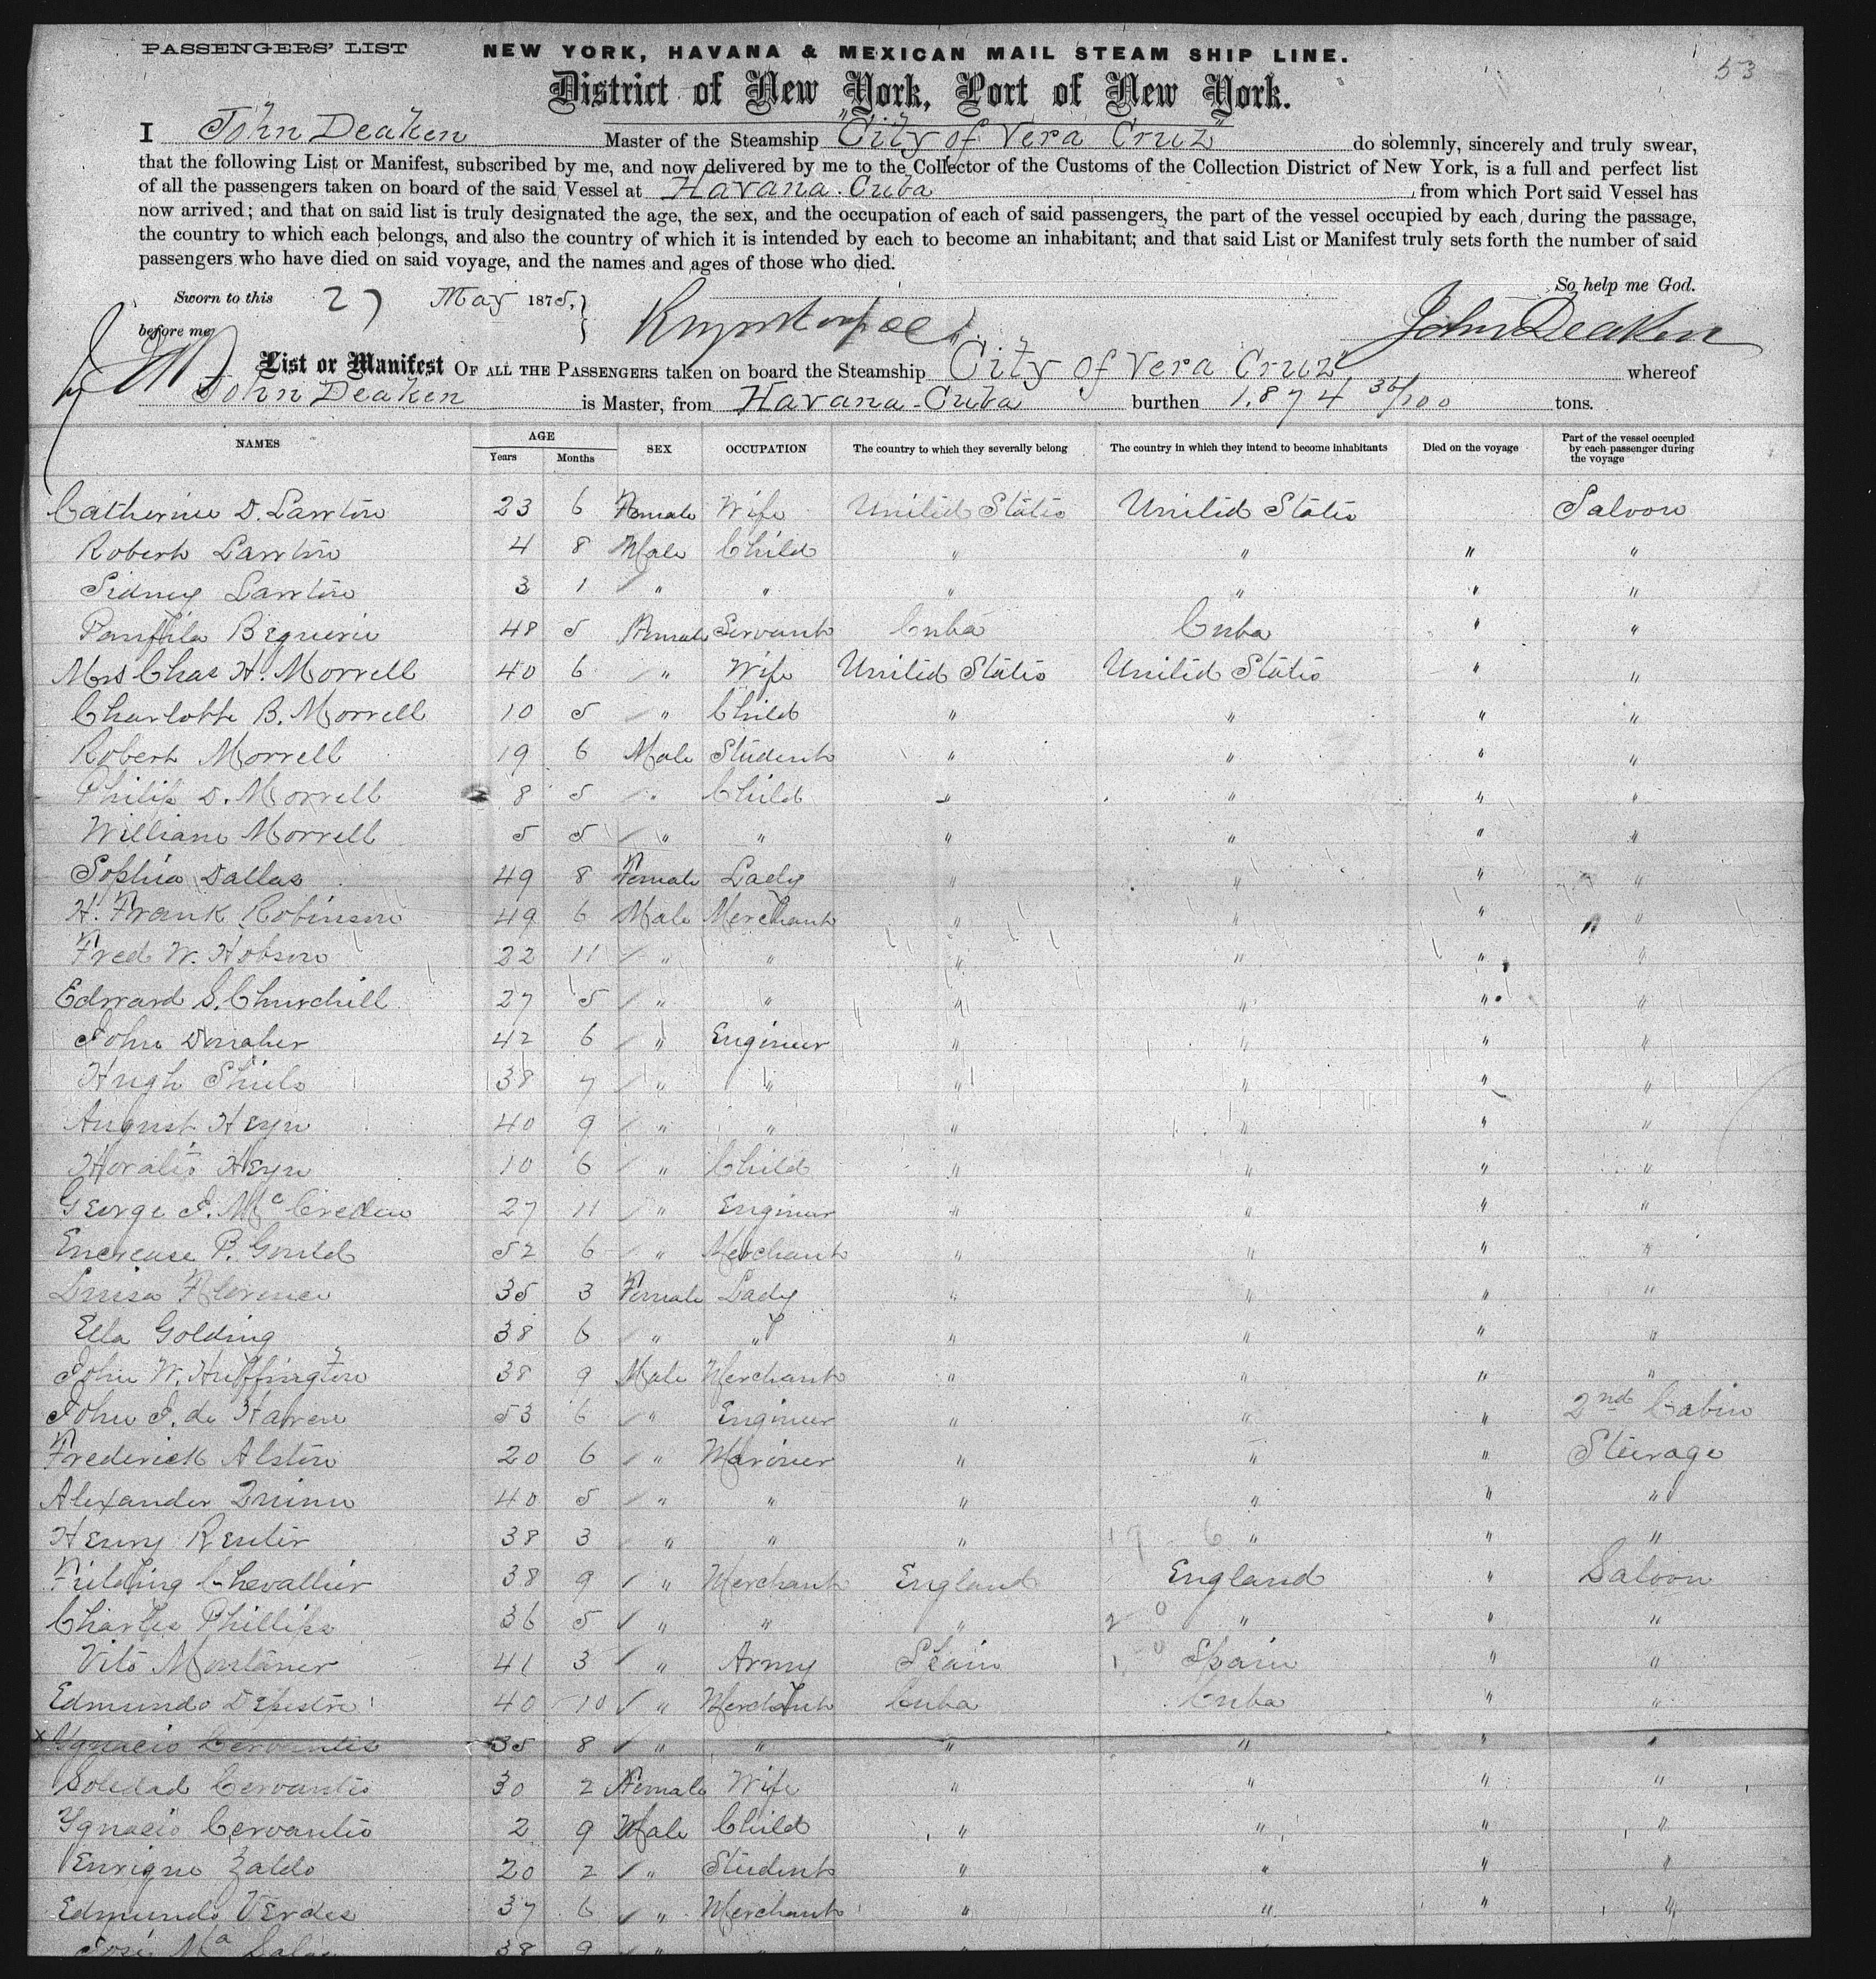 PASSENGERS' LIST NEW YORK, HAVANA & MEXICAN MAIL STEAM SHIP LINE.
53
District of New York, Port of New York.
I John Deaken Master of the Steamship "City of Vera Cruz" do solemnly, sincerely and truly swear,
that the following List or Manifest, subscribed by me, and now delivered by me to the Collector of the Customs of the Collection District of New York, is a full and perfect list
of all the passengers taken on board of the said Vessel at Havana. Cuba, from which Port said Vessel has
now arrived; and that on said list is truly designated the age, the sex, and the occupation of each of said passengers, the part of the vessel occupied by each, during the passage,
the country to which each belongs, and also the country of which it is intended by each to become an inhabitant; and that said List or Manifest truly sets forth the number of said
passengers who have died on said voyage, and the names and ages of those who died.
So help me God.
Sworn to this 27 May 1875,
before me John Deaken
List or Manifest OF ALL THE PASSENGERS taken on board the Steamship City of Vera Cruz whereof
John Deaken is Master, from Havana-Cuba burthen 1.874 36/100 tons.
NAMES AGE Years Months SEX OCCUPATION The country to which they severally belong The country in which they intend to become inhabitants Died on the voyage Part of the vessel occupied by each passenger during the voyage
Catherine D. Lawton 23 6 Female Wife United States United States Saloon
Robert Lawton 4 8 Male Child " " " "
Sidney Lawton 3 1 " " " " " "
Panfila 48 5 Female Servant Cuba Cuba " "
Mrs Chas H. Morrell 40 6 " Wife United States United States " "
Charlotte B. Morrell 10 5 " Child " " " "
Robert Morrell 19 6 Male Student " " " "
Philip D. Morrell 8 5 " Child " " " "
William Morrell 5 5 " " " " " "
Sophia Dallas 49 8 Female Lady " " " "
H. Frank Robinson 49 6 Male Merchant " " " "
Fred W. Hobson 22 11 " " " " " "
Edward S. Churchill 27 5 " " " " " "
John Donaher 42 6 " Engineer " " " "
Hugh Shiels 38 7 " " " " " "
August Heyn 40 9 " " " " " "
Horatio Heyn 10 6 " Child " " " "
George J. Mc 27 11 " Engineer " " " "
Encrease P. Gould 52 6 " Merchant " " " "
Luisa Florence 35 3 Female Lady " " " "
Ella Golding 38 6 " " " " " "
John W. Huffington 38 9 Male Merchant " " " "
John J. de Haven 53 6 " Engineer " " " 2nd Cabin
Frederick Alston 20 6 " Mariner " " " Steerage
Alexander Quinn 40 5 " " " " " "
Henry Reuter 38 3 " " " " " "
Fielding Chevallier 38 9 " Merchant England England " Saloon
Charles Phillips 36 5 " " " " " "
Vito Montaner 41 3 " Army Spain Spain " "
Edmundo Depestre 40 10 " Merchant Cuba Cuba " "
x Ygnacio Cervantes 35 8 " " " " " "
Soledad Cervantes 30 2 Female Wife " " " "
Ygnacio Cervantes 2 9 Male Child " " " "
Enrique Zaldo 20 2 " Student " " " "
Edmundo Verdes 37 6 " Merchant " " " "
José Ma Salas 38 9 "